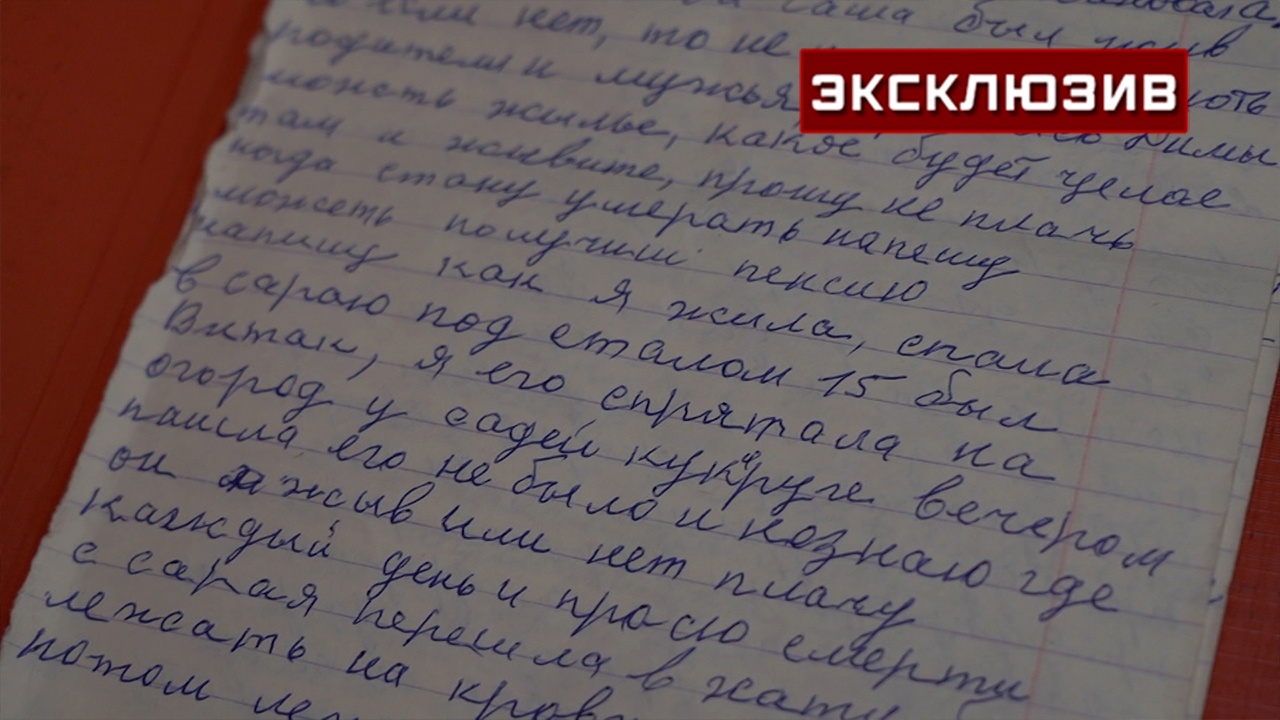 Саша был жив
если нет, то не
ЭКСКЛЮЗИВ
родители мужья Димы
можеть жилье, какое будет целое
там и живите, прошу не плачь
когда стану умерать напешу
можеть получиш пенсию
напишу как я жила, спала
в сараю под сталом 15 был
Витак, я его спрятала на
огород у садей кукруге вечером
пашла его не было и незнаю где
он жыв или нет плачу
Каждый день и прасю смерти
с сарая перешла в хату
лежать на крова
потом ле